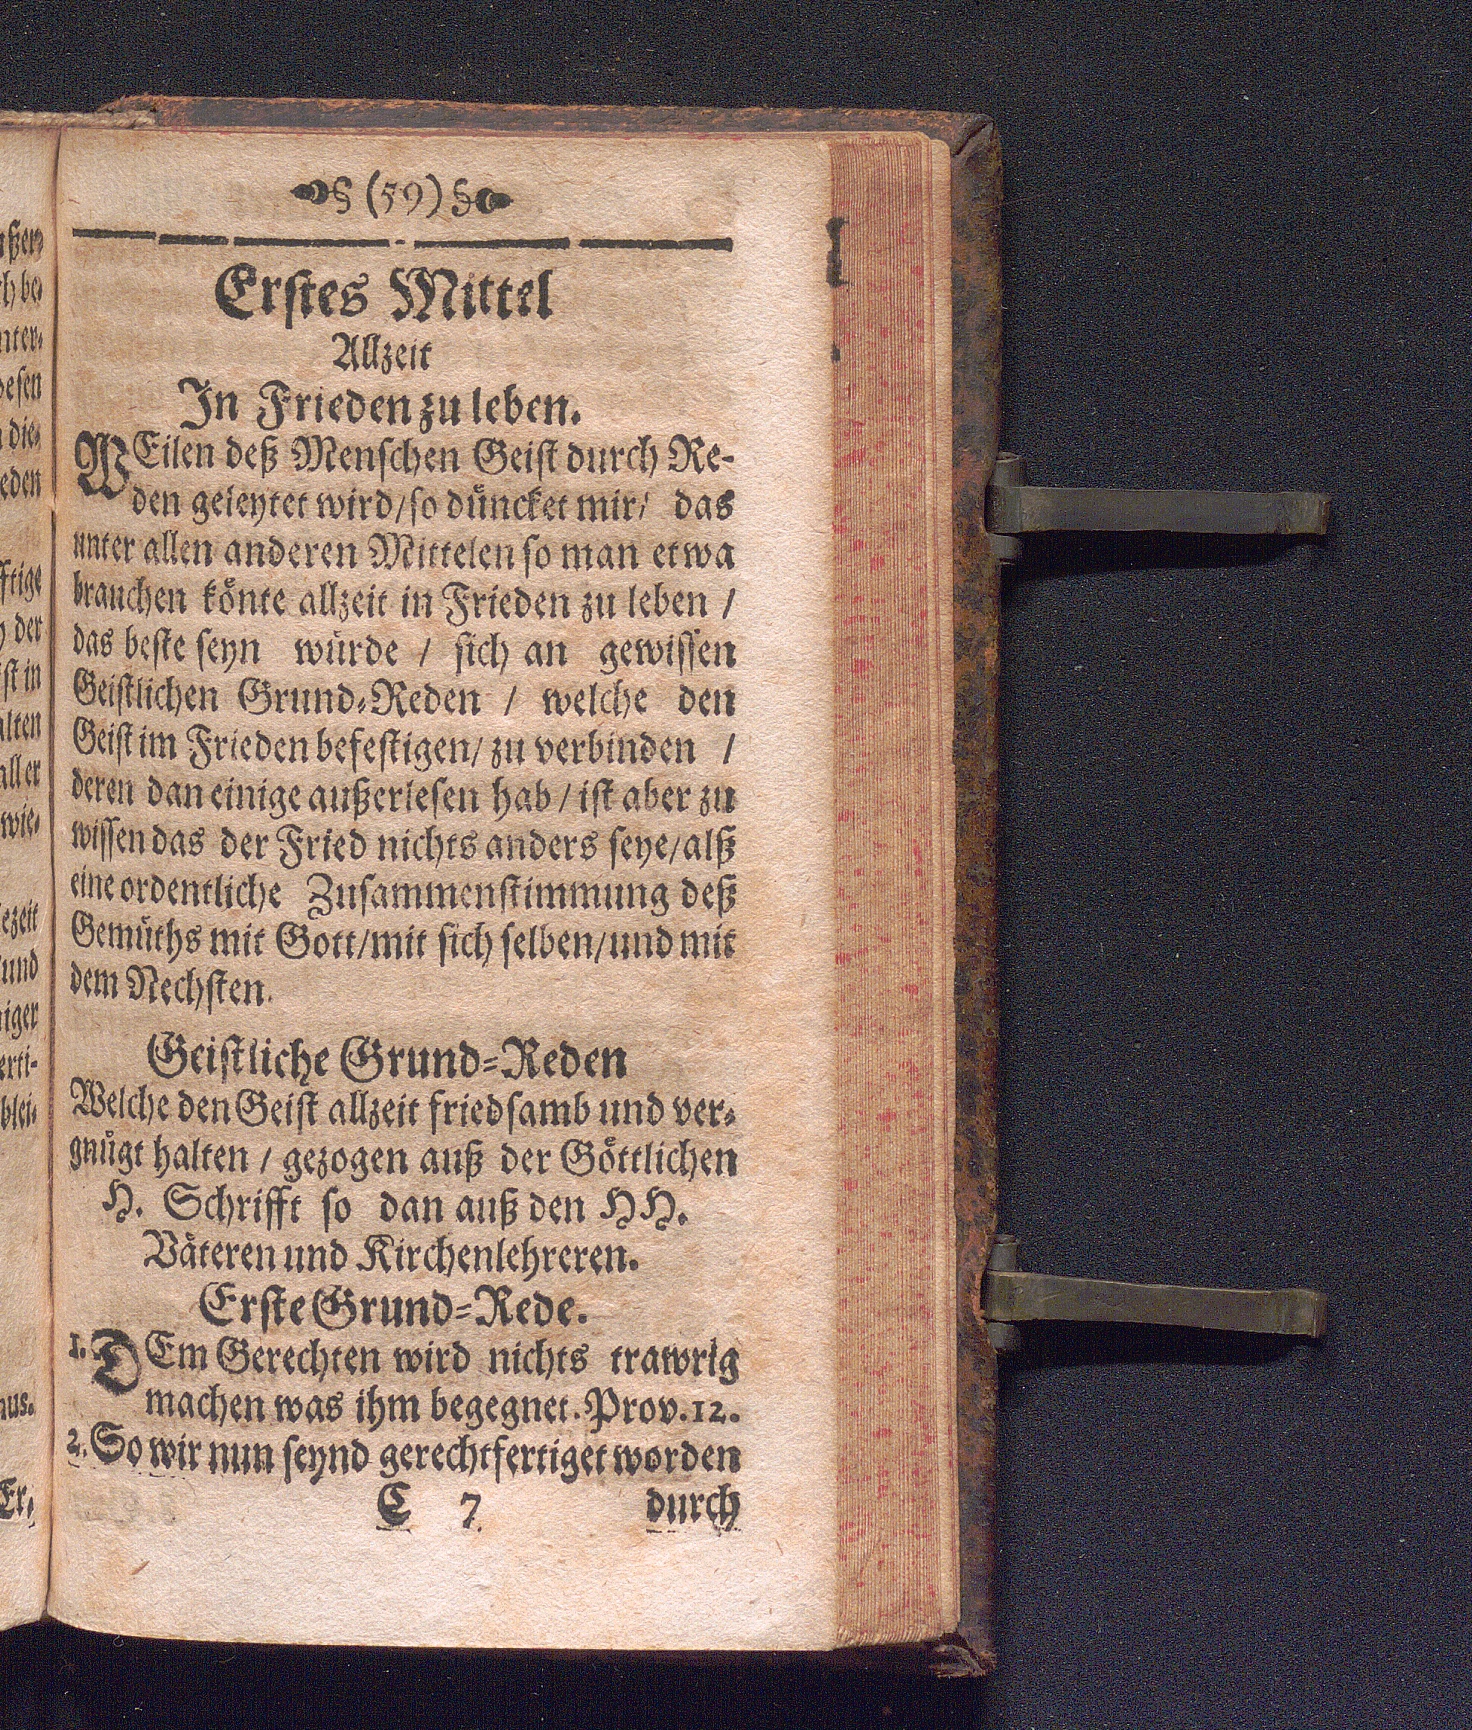 § (59) §
Erstes Mittel
Allzeit
In Frieden zu leben.
WEilen deß Menschen Geist durch Re-
den geleytet wird/so düncket mir/ das
unter allen anderen Mittelen so man etwa
brauchen könte allzeit in Frieden zu leben /
das beste seyn würde / sich an gewissen
Geistlichen Grund-Reden / welche den
Geist im Frieden befestigen/ zu verbinden /
deren dan einige außerlesen hab / ist aber zu
wissen das der Fried nichts anders seye/alß
eine ordentliche Zusammenstimmung deß
Gemüths mit Gott/mit sich selben/und mit
dem Nechsten.
Geistliche Grund-Reden
Welche den Geist allzeit friedsamb und ver-
gnügt halten / gezogen auß der Göttlichen
H. Schrifft so dan auß den HH.
Väteren und Kirchenlehreren.
Erste Grund-Rede.
1. DEm Gerechten wird nichts trawrig
machen was ihm begegnet. Prov. 12.
2. So wir nun seynd gerechtfertiget worden
C 7 durch